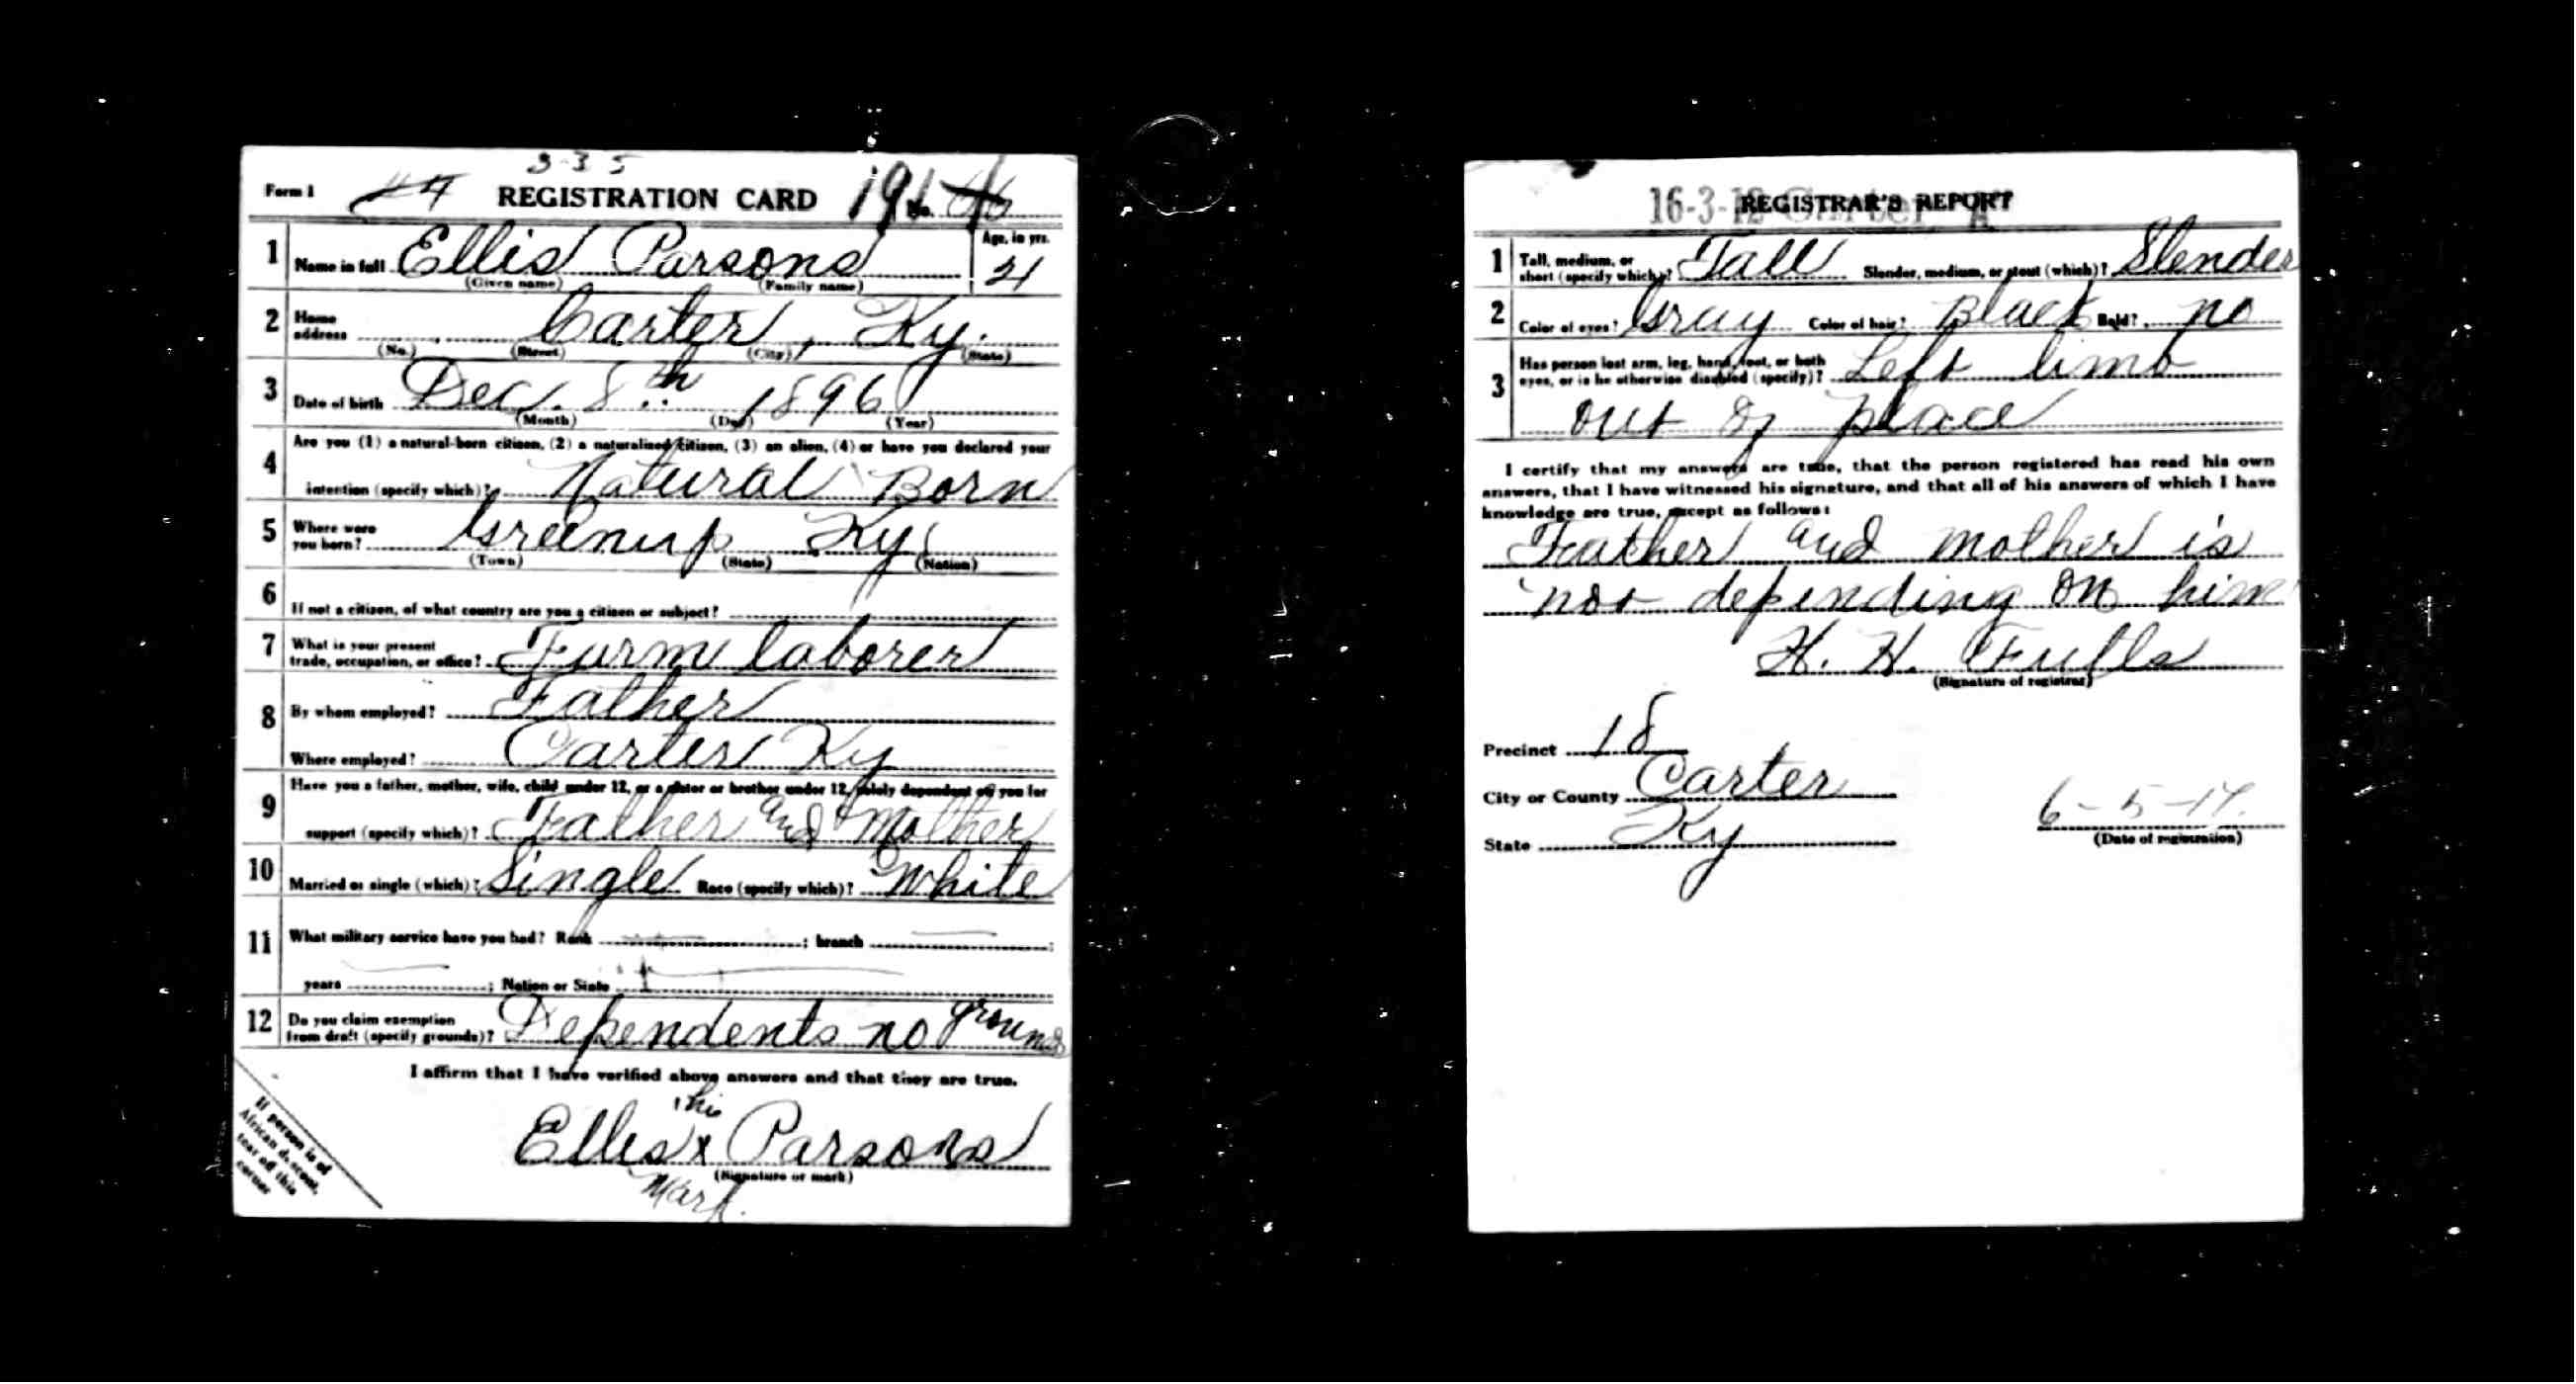 3-3-5
Form 1 REGISTRATION CARD No.
1 Name in full Ellis Parsons Age, in yrs. 21
(Given name) (Family name)
2 Home address Carter, Ky.
(No.) (Street) (City) (State)
3 Date of birth Dec. 8th 1896
(Month) (Day) (Year)
4 Are you (1) a natural-born citizen, (2) a naturalized citizen, (3) an alien, (4) or have you declared your
intention (specify which)? Natural Born
5 Where were you born? Greenup Ky
(Town) (State) (Nation)
6 If not a citizen, of what country are you a citizen or subject?
7 What is your present trade, occupation, or office? Farm laborer
8 By whom employed? Father
Where employed? Carter Ky
9 Have you a father, mother, wife, child under 12, or a sister or brother under 12, solely dependent on you for
support (specify which)? Father and mother
10 Married or single (which)? Single Race (specify which)? White
11 What military service have you had? Rank ; branch ;
years ; Nation or State
12 Do you claim exemption from draft (specify grounds)? Dependents no grounds
I affirm that I have verified above answers and that they are true.
his
Ellis x Parsons
(Signature or mark)
Mark.
If person is of
African descent,
tear off this
corner
16-3-12 Carter A
REGISTRAR'S REPORT
1 Tall, medium, or short (specify which)? Tall Slender, medium, or stout (which)? Slender
2 Color of eyes? Gray Color of hair? Black Bald? no
3 Has person lost arm, leg, hand, foot, or both
eyes, or is he otherwise disabled (specify)? Left limb
out of place
I certify that my answers are true, that the person registered has read his own
answers, that I have witnessed his signature, and that all of his answers of which I have
knowledge are true, except as follows:
Father and mother is
not depending on him
H. H.
(Signature of registrar)
Precinct 18
City or County Carter
State Ky
6-5-17.
(Date of registration)